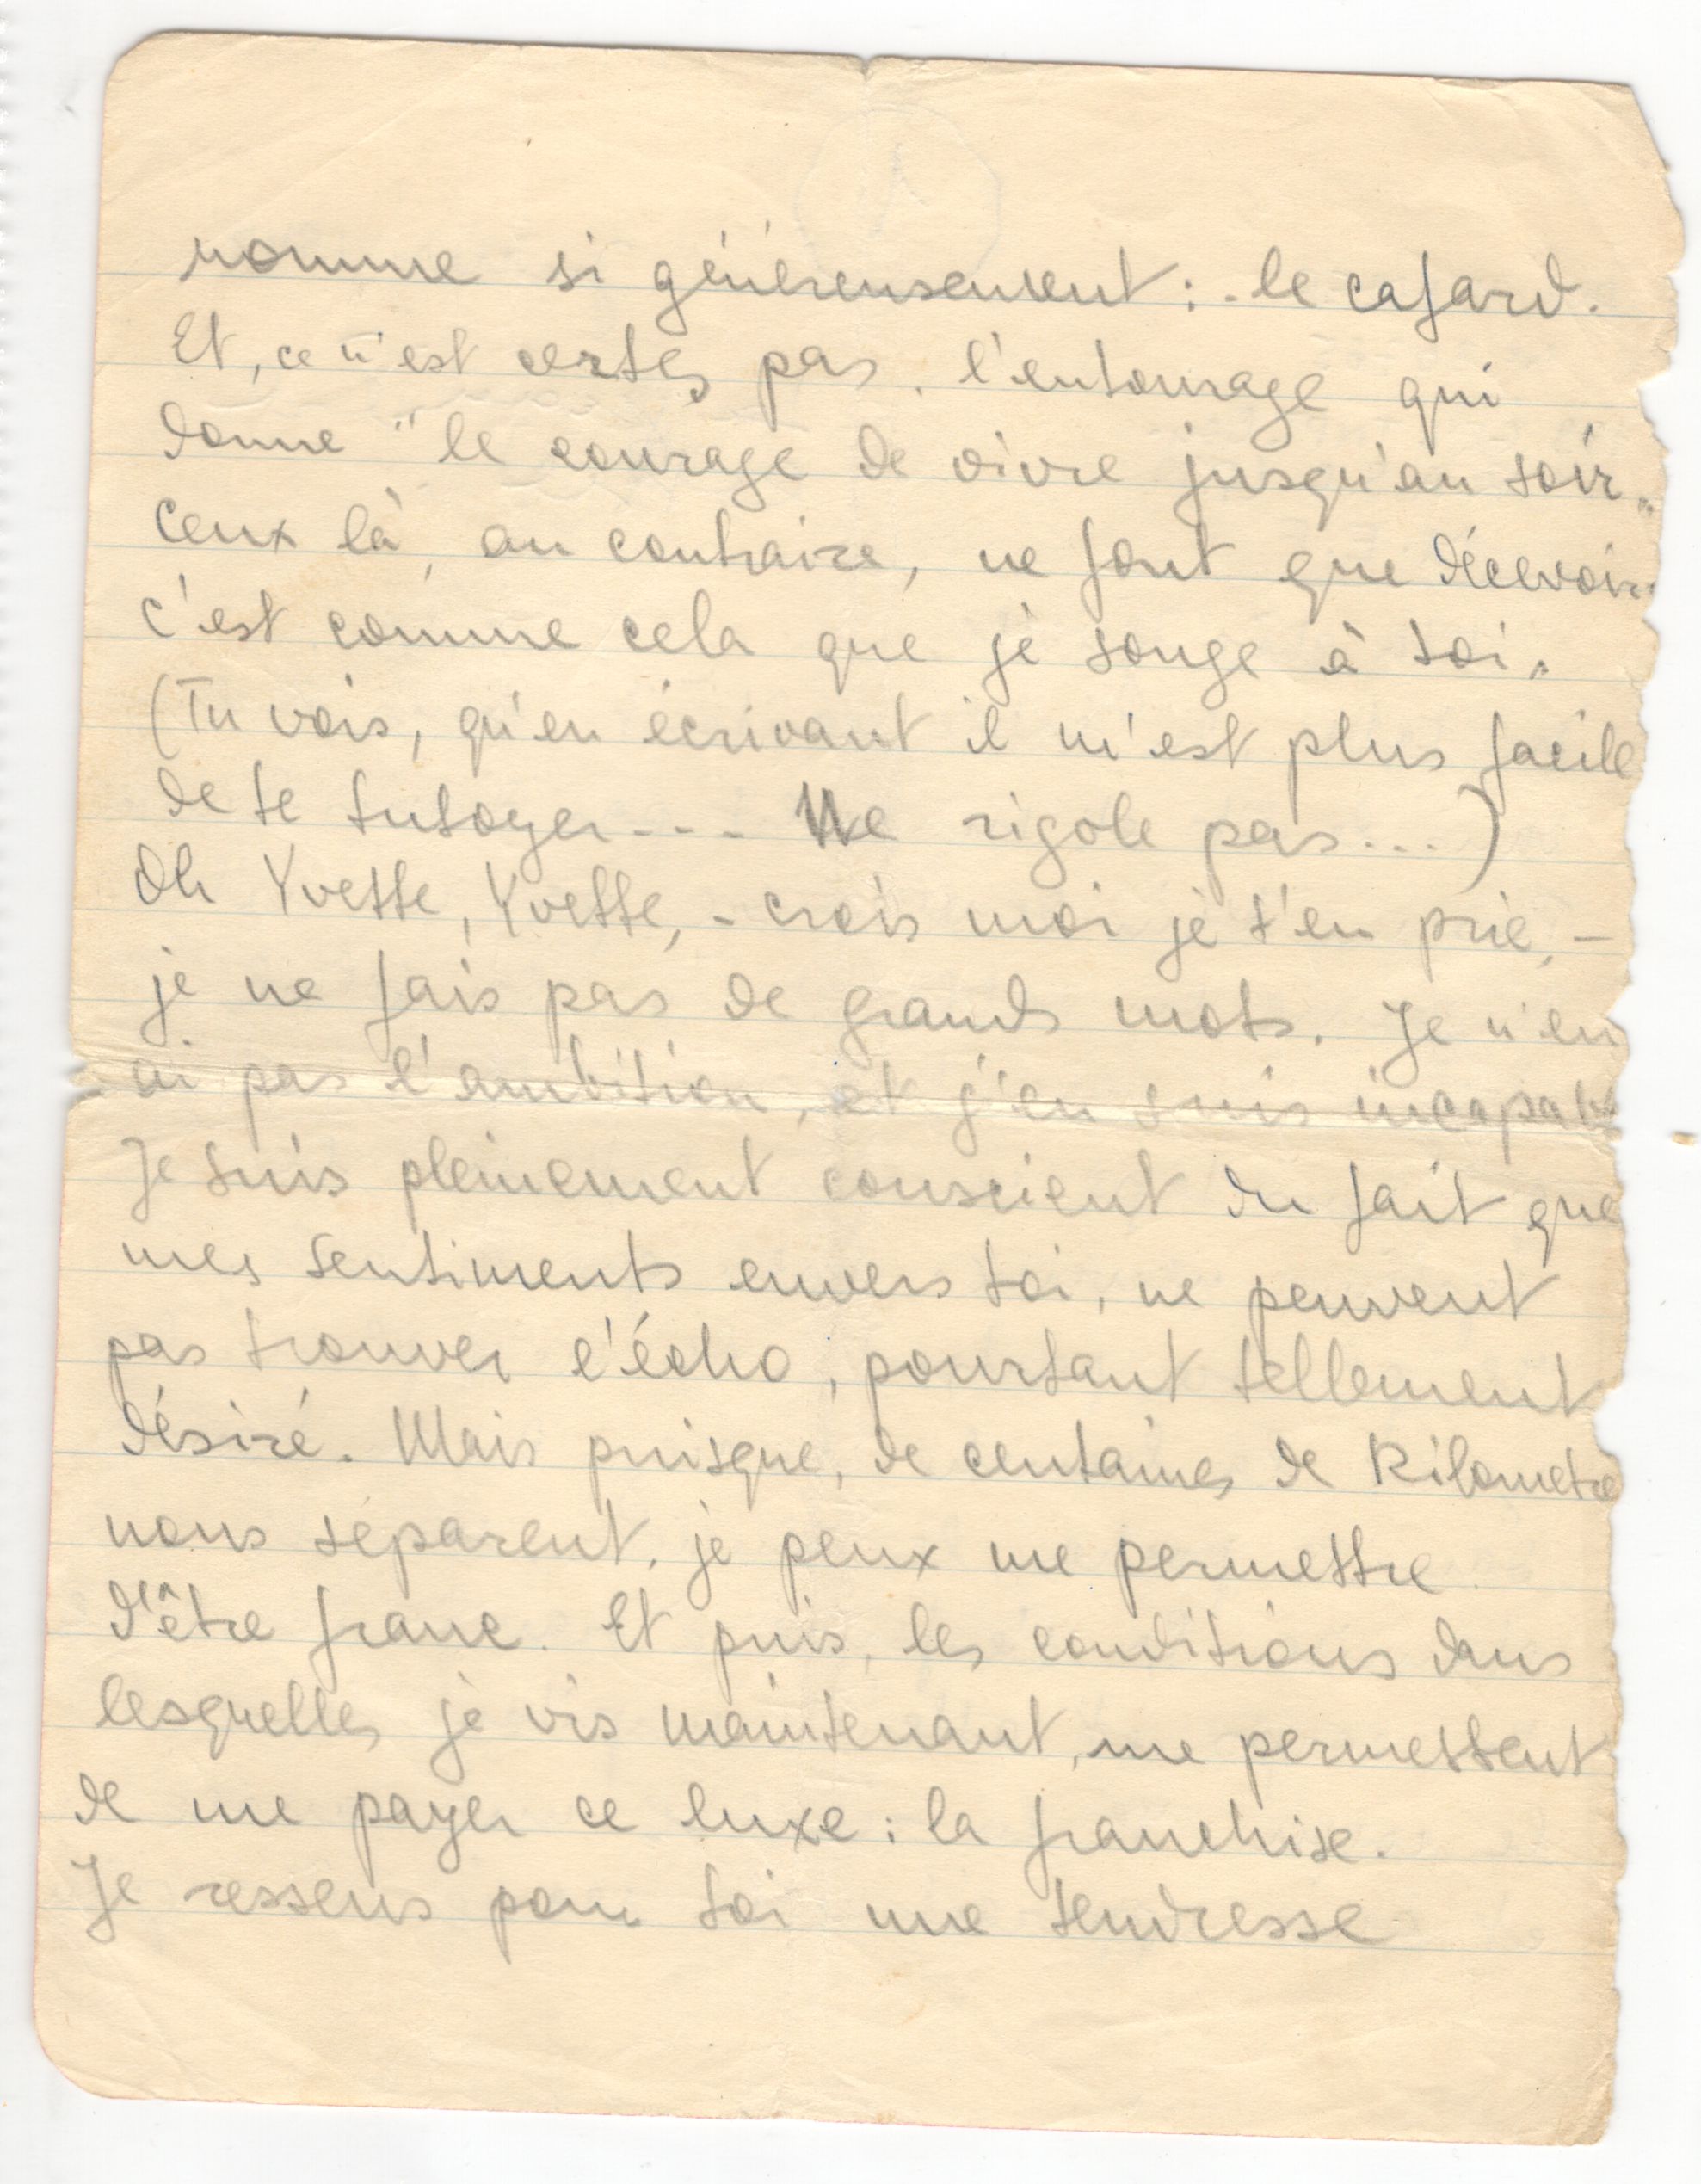 nomme si généreusement : - le cafard.
Et, ce n'est certes pas, l'entourage qui
donne "le courage de vivre jusqu'au soir"
Ceux là, au contraire, ne font que décevoir.
C'est comme cela que je songe à toi.
(Tu vois, qu'en écrivant il m'est plus facile
de te tutoyer --- Ne rigole pas...)
Oh Yvette, Yvette, - crois moi je t'en prie, -
je ne fais pas de grands mots. Je n'en
ai pas l'ambition, et j'en suis incapable
Je suis pleinement conscient du fait que
mes sentiments envers toi, ne peuvent
pas trouver l'écho, pourtant tellement
désiré. Mais puisque, de centaines de Kilometre
nous séparent, je peux me permettre
d'être franc. Et puis, les conditions dans
lesquelles je vis maintenant, me permettent
de me payer ce luxe : la franchise.
Je ressens pour toi une tendresse